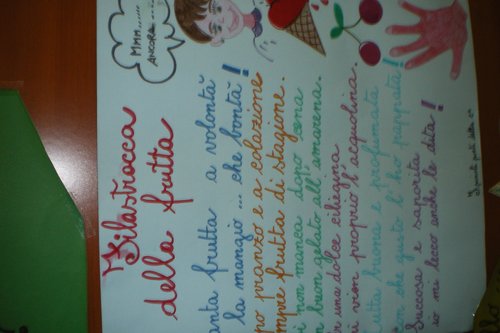 MMM......
ANCORA......
Filastrocca
della frutta
anta frutta a volontà
la mangio ... che bontà!
po pranzo e a colazione
mpre frutta di stagione.
i non manca dopo cena
buon gelato all'amarena.
r una dolce ciliegina
i vien proprio l'acquolina.
utta buona e profumata
on che gusto l'ho pappata!
succosa e saporita
io mi lecco anche le dita!
poeti della